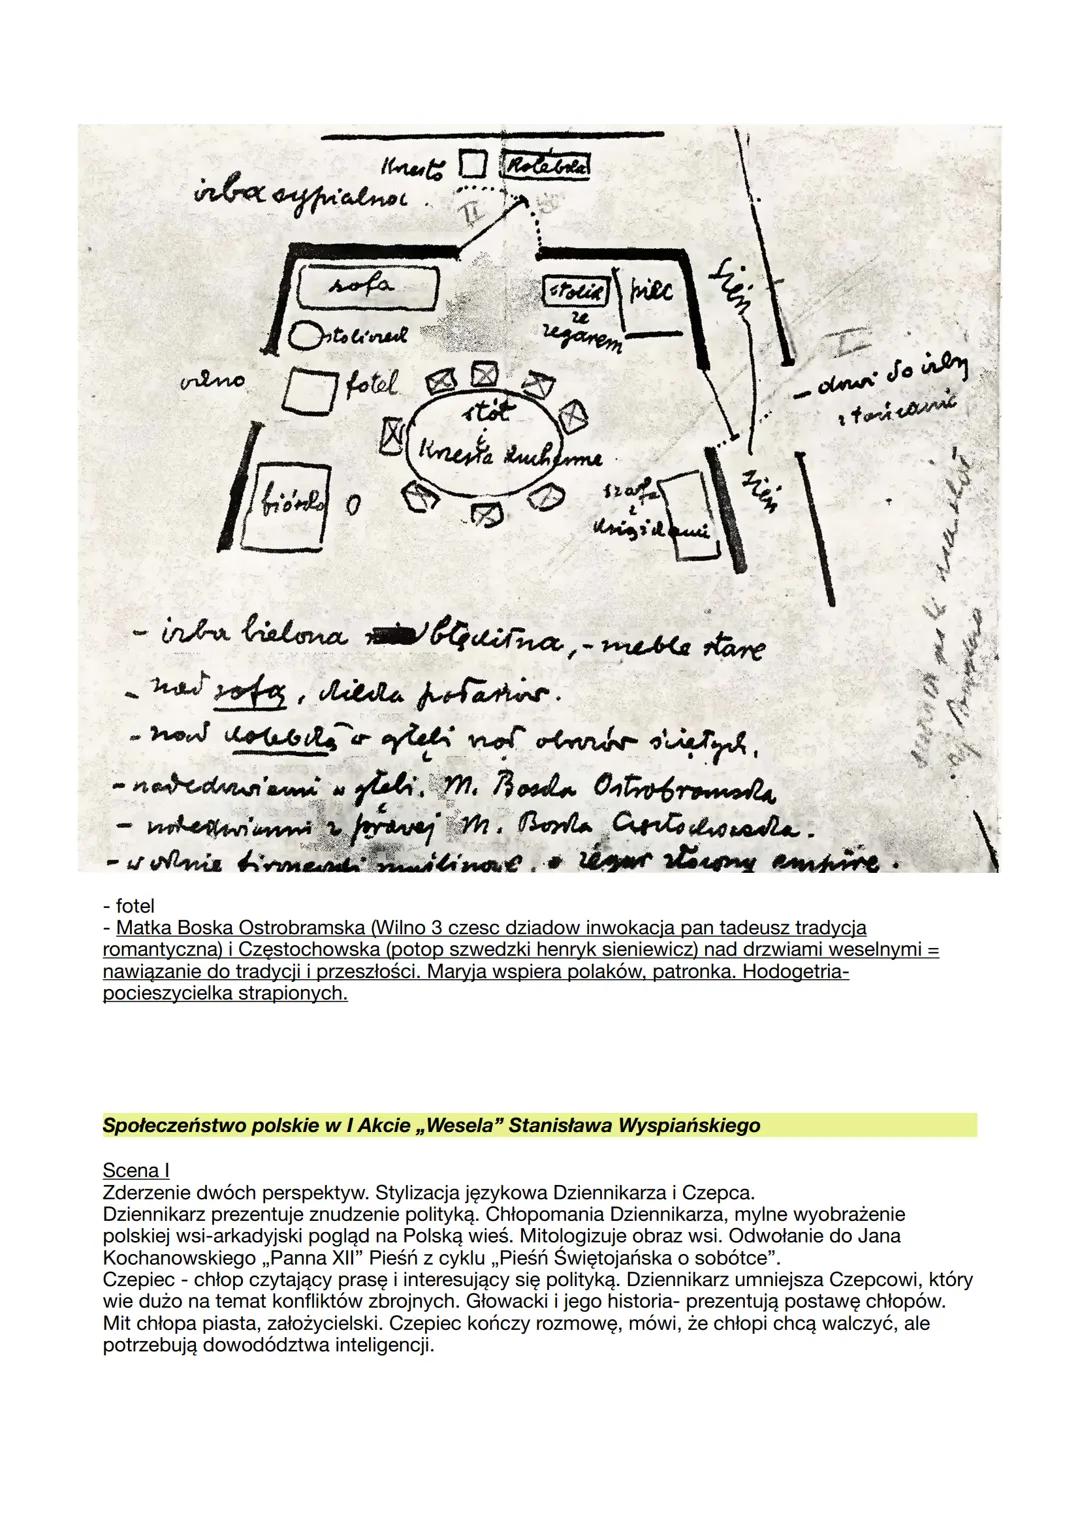 Krzesło
Kolebka
izba sypialna
II
sofa
stolik
ze
zegarem
piec
sień
stoliczek
okno
fotel
stół
i
Krzesła kuchenne
I
- drzwi do izby
biórko
szafa
z
książkami
sień
- izba bielona błękitna, - meble stare
- nad sofą,
- nad kolebką w głębi obrazów świętych,
- nadedrzwiami w głębi, M. Boska Ostrobramska
- nadedrzwiami z prawej M. Boska Częstochowska.
- w oknie firaneczki muślinowe, zegar złocony empire.
- fotel
- Matka Boska Ostrobramska (Wilno 3 czesc dziadow inwokacja pan tadeusz tradycja
romantyczna) i Częstochowska (potop szwedzki henryk sieniewicz) nad drzwiami weselnymi =
nawiązanie do tradycji i przeszłości. Maryja wspiera polaków, patronka. Hodogetria-
pocieszycielka strapionych.
Społeczeństwo polskie w I Akcie „Wesela” Stanisława Wyspiańskiego
Scena I
Zderzenie dwóch perspektyw. Stylizacja językowa Dziennikarza i Czepca.
Dziennikarz prezentuje znudzenie polityką. Chłopomania Dziennikarza, mylne wyobrażenie
polskiej wsi-arkadyjski pogląd na Polską wieś. Mitologizuje obraz wsi. Odwołanie do Jana
Kochanowskiego „Panna XII” Pieśń z cyklu „Pieśń Świętojańska o sobótce”.
Czepiec - chłop czytający prasę i interesujący się polityką. Dziennikarz umniejsza Czepcowi, który
wie dużo na temat konfliktów zbrojnych. Głowacki i jego historia- prezentują postawę chłopów.
Mit chłopa piasta, założycielski. Czepiec kończy rozmowę, mówi, że chłopi chcą walczyć, ale
potrzebują dowodództwa inteligencji.